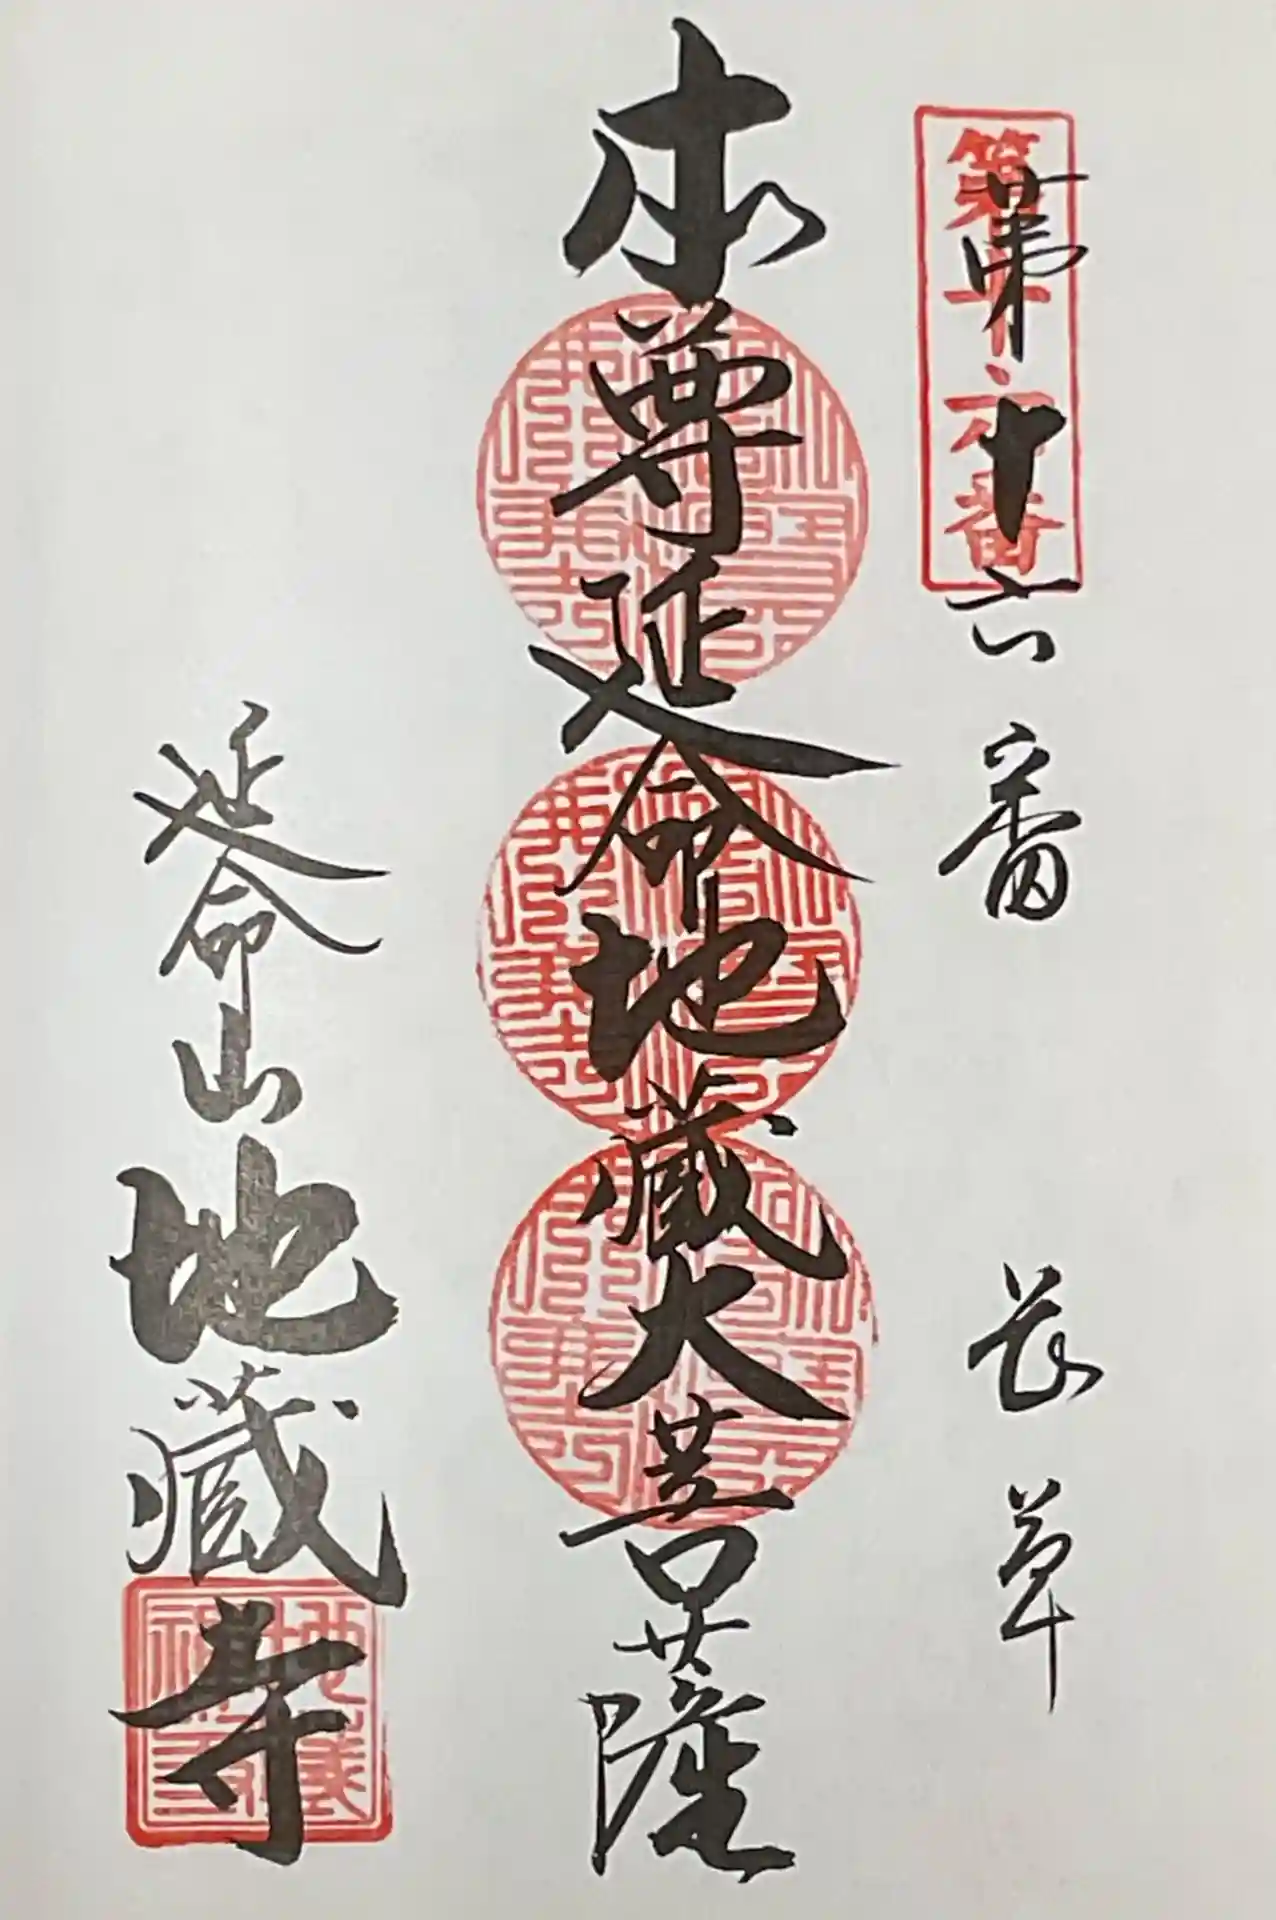 第十六番
第十六番
長草
本尊延命地蔵大菩薩
延命山地蔵寺